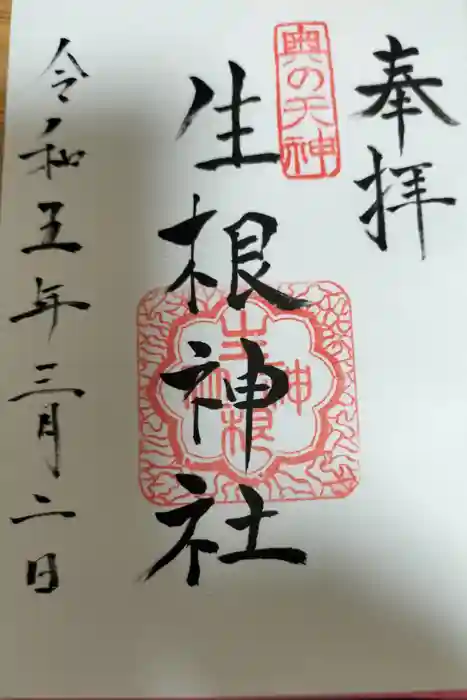 奉拝
奥の天神
生根神社
令和五年三月二日